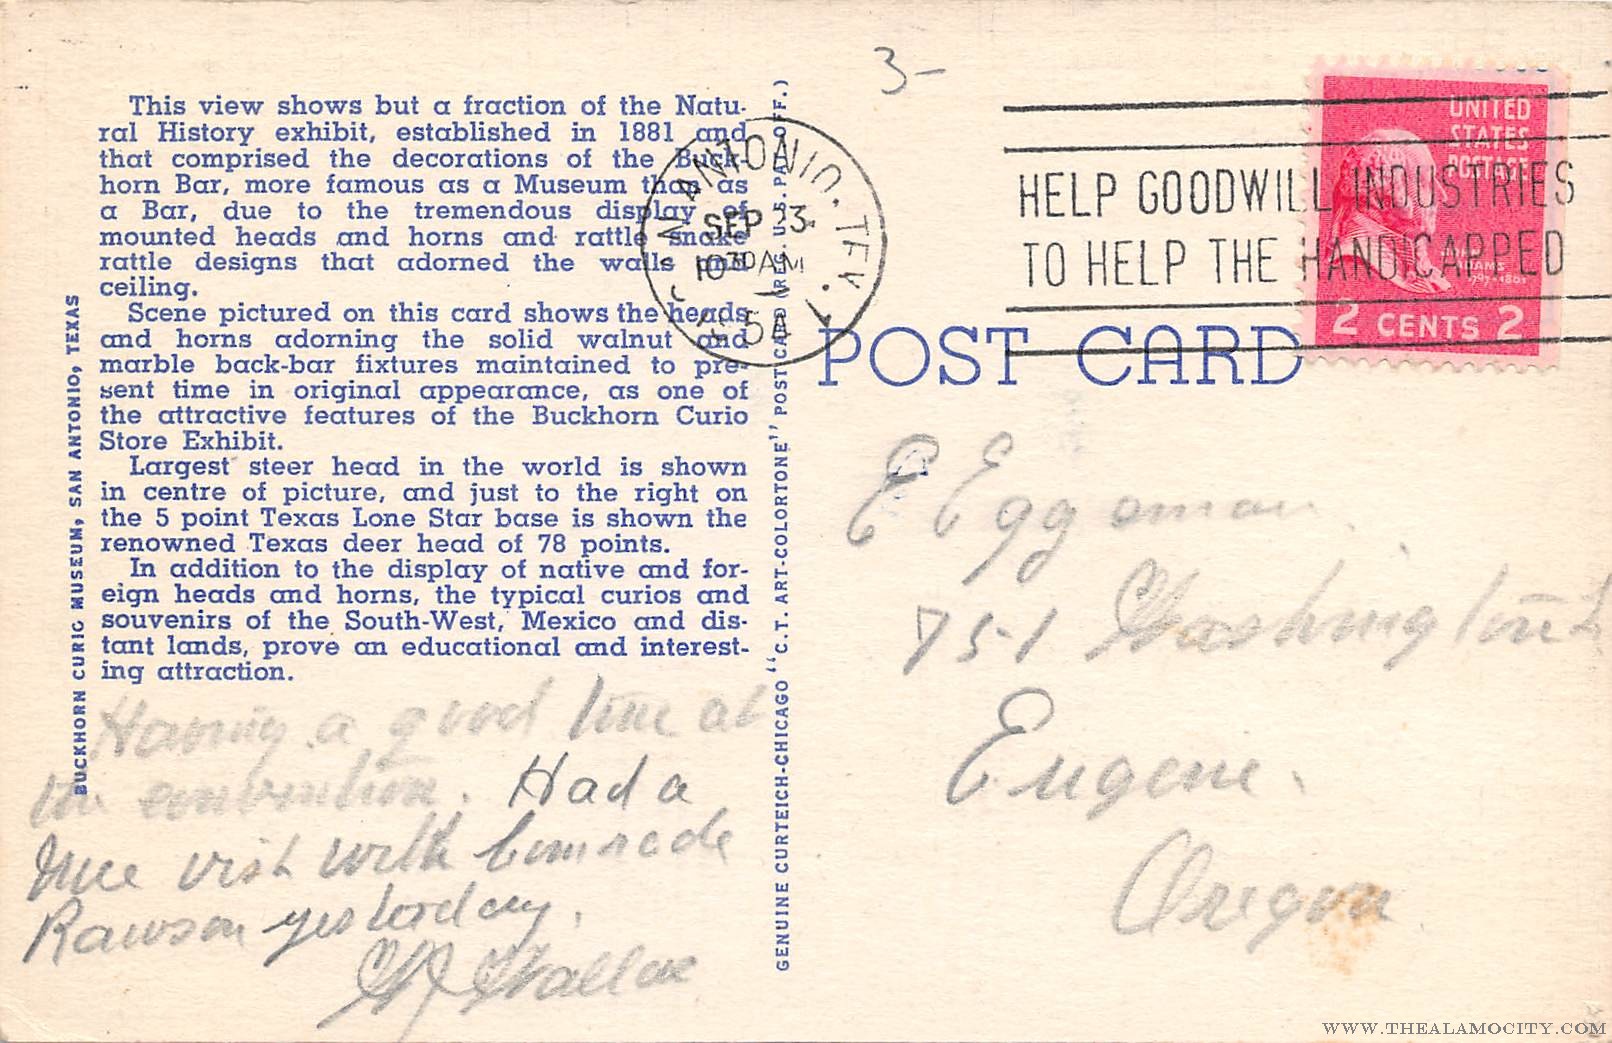 This view shows but a fraction of the Natu-
ral History exhibit, established in 1881 and
that comprised the decorations of the Buck-
horn Bar, more famous as a Museum than as
a Bar, due to the tremendous display of
mounted heads and horns and rattle snake
rattle designs that adorned the walls and
ceiling.
Scene pictured on this card shows the heads
and horns adorning the solid walnut and
marble back-bar fixtures maintained to pre-
sent time in original appearance, as one of
the attractive features of the Buckhorn Curio
Store Exhibit.
Largest steer head in the world is shown
in centre of picture, and just to the right on
the 5 point Texas Lone Star base is shown the
renowned Texas deer head of 78 points.
In addition to the display of native and for-
eign heads and horns, the typical curios and
souvenirs of the South-West, Mexico and dis-
tant lands, prove an educational and interest-
ing attraction.
BUCKHORN CURIO MUSEUM, SAN ANTONIO, TEXAS
Having a good time at
the convention. Had a
Nice visit with Comrade
Rawson yesterday.
Wallace
GENUINE CURTEICH-CHICAGO "C.T. ART-COLORTONE" POST CARD (REG. U.S. PAT. OFF.)
3-
SAN ANTONIO, TEX.
SEP 23
10 30 AM
HELP GOODWILL INDUSTRIES
TO HELP THE HANDICAPPED
UNITED
STATES
POSTAGE
JOHN
ADAMS
1797-1801
2 CENTS 2
POST CARD
E Eggoman
751 Washington St
Eugene.
Oregon
WWW.THEALAMOCITY.COM